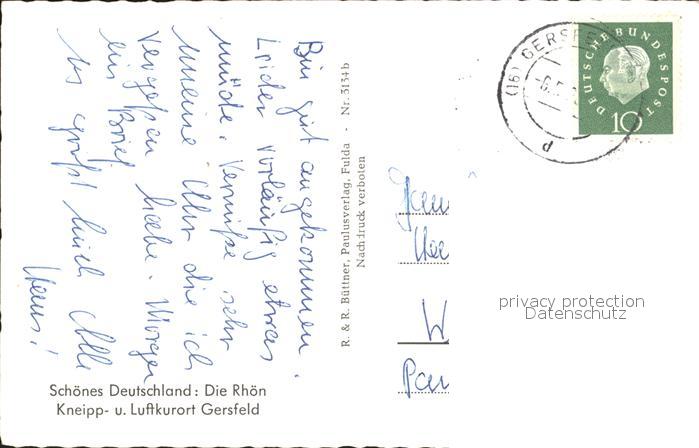 Bin gut angekommen.
Leider vorläufig etwas
müde. Vermiße sehr
meine Uhr die ich
vergeßen habe. Morgen
ein Brief.
Es grüßt Euch Alle
Hans!
Schönes Deutschland: Die Rhön
Kneipp- u. Luftkurort Gersfeld
R. & R. Büttner, Paulusverlag, Fulda - Nr. 3134 b
Nachdruck verboten
DEUTSCHE BUNDESPOST
10
(16) GERSF
W
privacy protection
Datenschutz